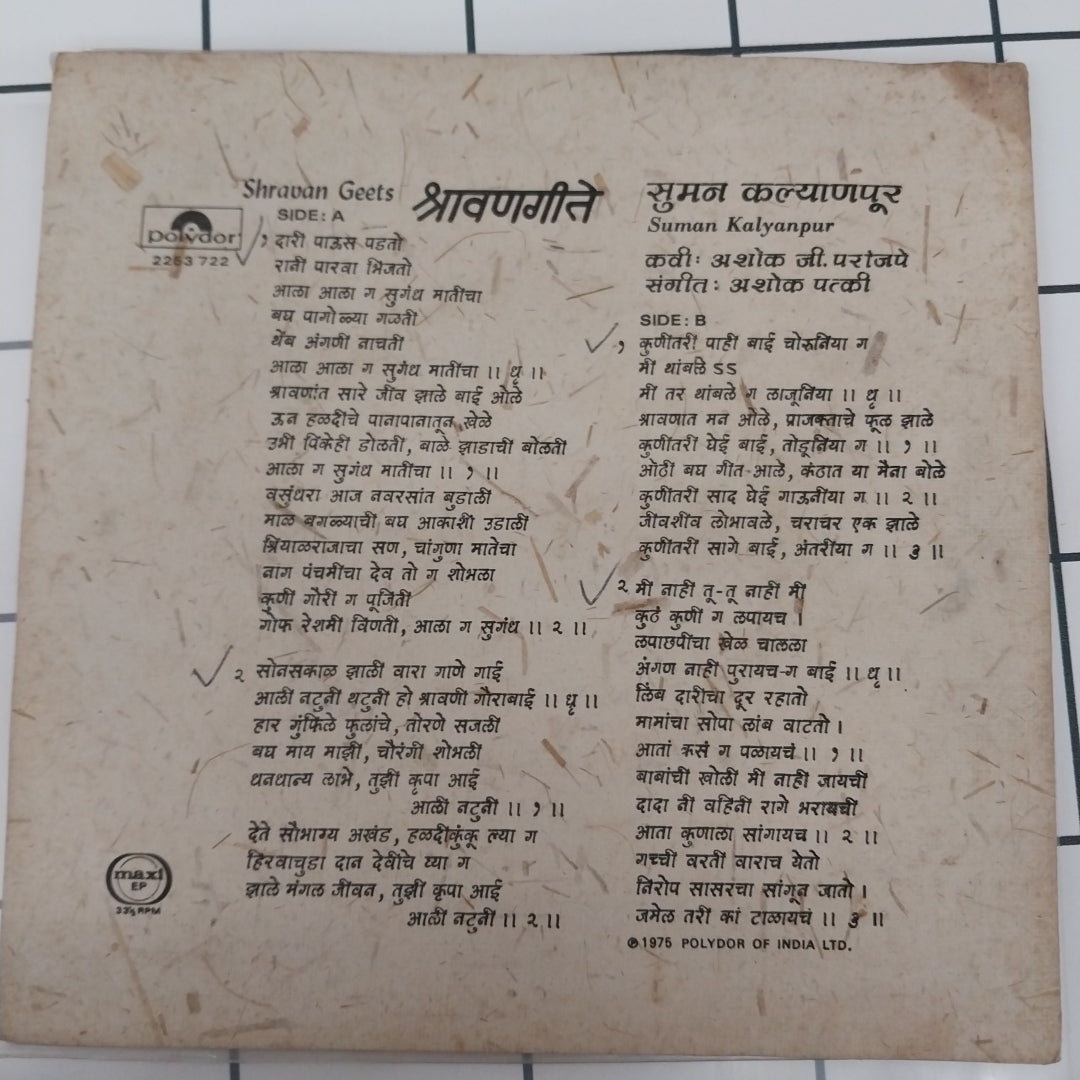 Shravan Geets
श्रावणगीते
सुमन कल्याणपूर
Suman Kalyanpur
कवी: अशोक जी. परांजपे
संगीत: अशोक पत्की
polydor
2253 722
SIDE: A
१ दारी पाऊस पडतो
रानी पारवा भिजतो
आला आला ग सुगंध मातीचा
बघ पागोळ्या गळती
थेंब अंगणी नाचती
आला आला ग सुगंध मातीचा ।। धृ ।।
श्रावणांत सारे जीव झाले बाई ओले
ऊन हळदीचे पानापानातून खेळे
उभी पिकेही डोलती, बाळे झाडाची बोलती
आला ग सुगंध मातीचा ।। १ ।।
वसुंधरा आज नवरसांत बुडाली
माळ बगळ्याची बघ आकाशी उडाली
श्रियाळराजाचा सण, चांगुणा मातेचा
नाग पंचमीचा देव तो ग शोभला
कुणी गौरी ग पूजिती
गोफ रेशमी विणती, आला ग सुगंध ।। २ ।।
२ सोनसकाळ झाली वारा गाणे गाई
आली नटुनी थटुनी हो श्रावणी गौराबाई ।। धृ ।।
हार गुंफिले फुलांचे, तोरणे सजली
बघ माय माझी, चौरंगी शोभली
धनधान्य लाभे, तुझी कृपा आई
आली नटुनी ।। १ ।।
देते सौभाग्य अखंड, हळदीकुंकू ल्या ग
हिरवाचुडा दान देवीचे घ्या ग
झाले मंगल जीवन, तुझी कृपा आई
आली नटुनी ।। २ ।।
maxi
EP
33⅓ RPM
SIDE: B
१ कुणीतरी पाही बाई चोरूनिया ग
मी थांबले SS
मी तर थांबले ग लाजूनिया ।। धृ ।।
श्रावणात मन ओले, प्राजक्ताचे फूल झाले
कुणीतरी घेई बाई, तोडूनिया ग ।। १ ।।
ओठी बघ गीत आले, कंठात या मैना बोले
कुणीतरी साद घेई गाऊनीया ग ।। २ ।।
जीवशीव लोभावले, चराचर एक झाले
कुणीतरी सागे बाई, अंतरीया ग ।। ३ ।।
२ मी नाही तू-तू नाही मी
कुठं कुणी ग लपायच ।
लपाछपीचा खेळ चालला
अंगण नाही पुरायच-ग बाई ।। धृ ।।
लिंब दारीचा दूर रहातो
मामांचा सोपा लांब वाटतो ।
आतां कसं ग पळायचं ।। १ ।।
बाबांची खोली मी नाही जायची
दादा नी वहिनी रागे भरायची
आता कुणाला सांगायच ।। २ ।।
गच्ची वरती वाराच येतो
निरोप सासरचा सांगून जातो ।
जमेल तरी कां टाळायचं ।। ३ ।।
℗ 1975 POLYDOR OF INDIA LTD.